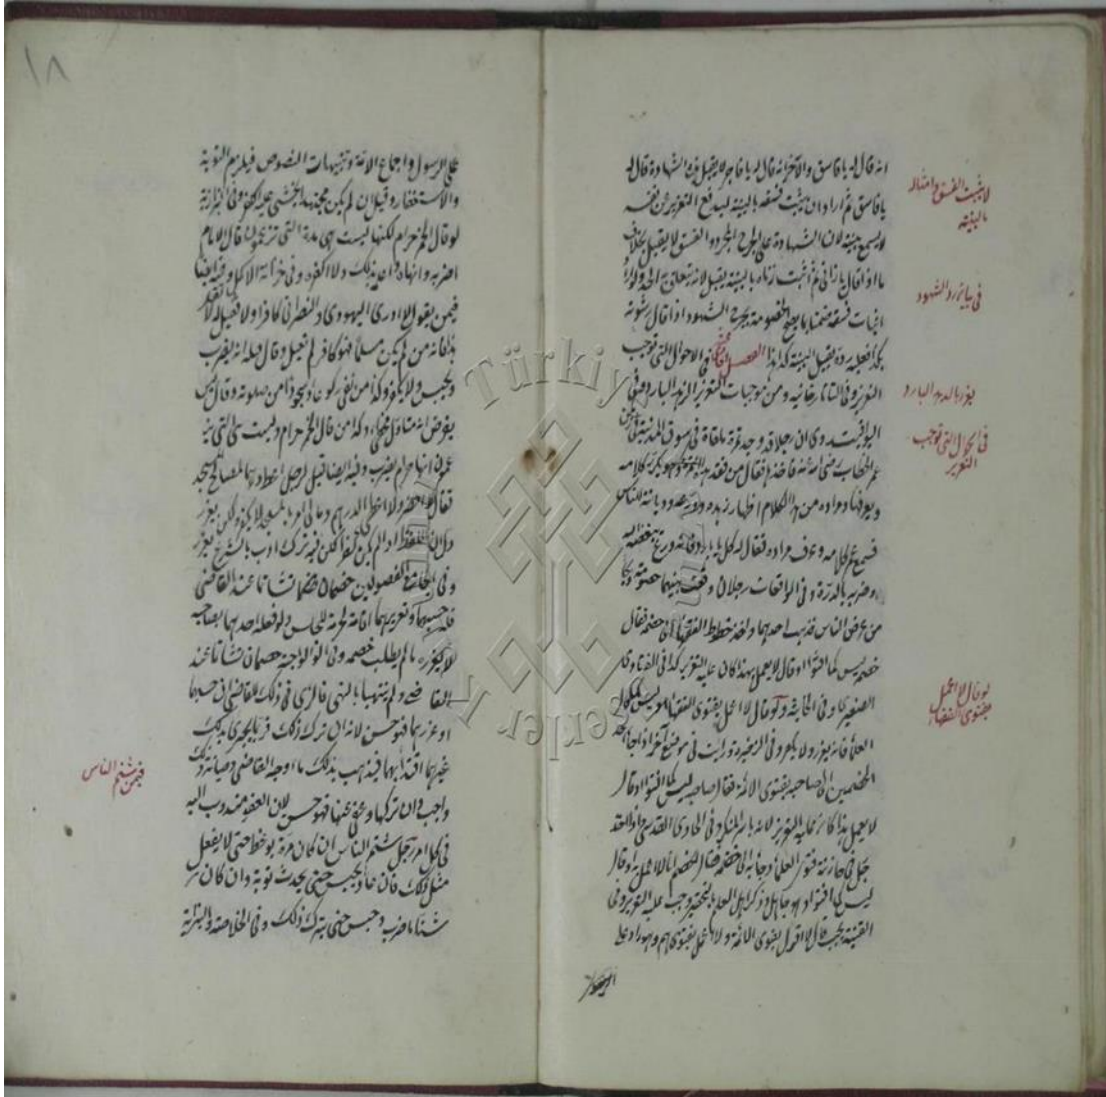 انه قال له يا فاسق والآخر انه قال له يا فاجر لا يقبل هذه الشهادة قال له
يا فاسق ثم اراد ان يثبت فسقه بالبينة ليدفع التعزير عن نفسه
لا يسمع بينته لان الشهادة على الجرح المجرد والفسق لا يقبل بخلاف
ما اذا قال يا زاني ثم اثبت زناه بالبينة يقبل لانه متعلق الحد ولو اراد
اثبات فسقه ضمنا لما يصح الخصومة بجرح الشهود اذا قال رشوته
بكذا فعليه رده يقبل البينة كذا هذا الفصل في الاحوال التي توجب
التعزير وفي التاتارخانيه ومن موجبات التعزير الزهد البارد وفي
روى ان رجلا قد وجد تمرة ملقاة في سوق المدينة في زمن
عمر الخطاب رضى الله عنه فاخذها فقال من فقد هذه التمرة وهو يكرر كلامه
ويعرفها ومراده من هذا الكلام اظهار زهده وورعه وديانته للناس
فسمع عمر كلامه وعرف مراده فقال له كل يا بارد فانه ورع يبغضه الله
وضربه بالدرة وفي الواقعات رجلان وقعت بينهما خصومة
من عرض الناس فذهب احدهما واخذ خطوط الفقهاء الى خصمه فقال
خصمه ليس كما افتوا او قال لا يعمل بهذا كان عليه التعزير كذا في الفتاوى
الصغرى وفي الخانية ولو قال لا اعمل بفتوى الفقهاء او ليس كما قال
العلماء فانه يعزر ولا يكفر وفي الذخيرة ورايت في موضع آخر اذا جاء احد
الخصمين الى صاحبه بفتوى الائمة فقال صاحبه ليس كما افتوا او قال
لا يعمل بهذا كان عليه التعزير لانه باشر المنكر وفي الحاوى القدسى
فتوى العلماء وجاء به الى خصمه فقال الخصم انا لا اعمل به او قال
ليس كما افتوا وهو جاهل وذكر اهل العلم بالتحقير وجب عليه التعزير وفي
القنية يجب قال لا اقول بفتوى الائمة ولا اعمل بفتواهم وهو راد على
لا يثبت الفسق وامثاله
بالبينة
في بيان رد الشهود
يعزر بالزهد البارد
في الاحوال التي توجب
التعزير
لو قال لا اعمل
بفتوى الفقهاء
١٨
على الرسول واجماع الائمة وتنبيهات النصوص فيلزم التوبة
والاستغفار وقيل ان لم يكن مجتهدا يخشى عليه الكفر وفي البزازية
لو قال الخمر حرام لكنها ليست هى هذه التي تزعمون قال الامام
اضربه وانهاه عن ذلك ولا اكفره وفي خزانة الاكمل وفيه ايضا
فيمن يقول لا ادرى اليهودى والنصرانى كافر او لا فقيل له
بذا فانه من لم يكن مسلما فهو كافر لم تعمل وقال قبله انه يضرب
ويحبس ولا يكفر وكذا من نفى ركوعا وسجودا من صلوته وقال ليس
بفرض انه متأول وكذا من قال الخمر حرام وليست هى التي
انها حرام يضرب وفيه ايضا قيل لرجل اعط درهما لمصالح المسجد
فقال لا احضر ولا اعطى الدرهم وما لى امر بالمسجد لا يكفر ولكن يعزر
دل ان اللفظ اذا لم يكن كفرا لكن فيه ترك ادب بالشرع يعزر
وفي الجامع الفصولين خصمان تشاتما عند القاضى
فله حبسهما وتعزيرهما اقامة لحرمة المجلس ولو فعله احدهما بصاحبه
لا يعزره ما لم يطلب خصمه وفي الولوالجية خصمان تشاتما عند
القاضى ولم ينتهيا بالنهى قال رأى في ذلك للقاضى ان حبسهما
او عزرهما فهو حسن لانه ان ترك ذلك فربما يجترى بذلك
غيرهما اقتداء بهما فيذهب بذلك ماء وجه القاضى وصيانة ذلك
واجب وان تركها وعفى عنهما فهو حسن لان العفو مندوب اليه
في كل امر رجل شتم الناس ان كان مرة يوعظ حتى لا يفعل
مثل ذلك فان عاد يحبس حتى يحدث توبة وان كان
شتاما ضرب وحبس حتى يترك ذلك وفي الخلاصة والبزازية
فيمن شتم الناس